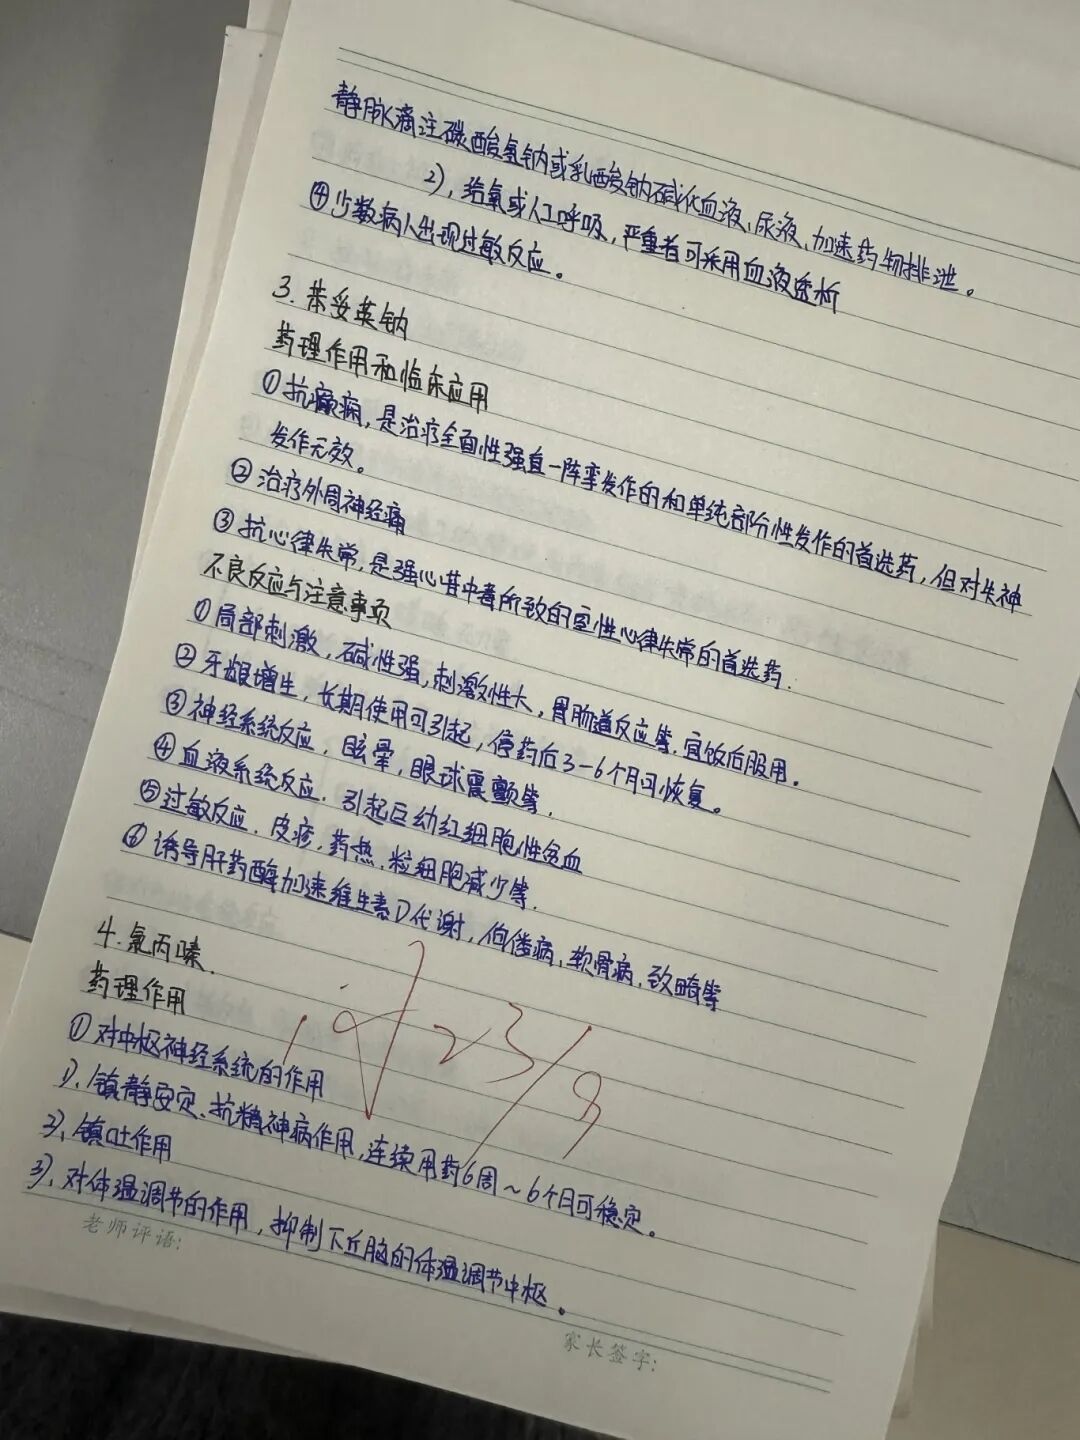 静脉滴注碳酸氢钠或乳酸钠碱化血液、尿液、加速药物排泄。
2)，给氧或人工呼吸，严重者可采用血液透析
④少数病人出现过敏反应。
3. 苯妥英钠
药理作用和临床应用
①抗癫痫，是治疗全面性强直一阵挛发作的和单纯部分性发作的首选药，但对失神
发作无效。
②治疗外周神经痛
③抗心律失常，是强心苷中毒所致的室性心律失常的首选药.
不良反应与注意事项
①局部刺激，碱性强，刺激性大，胃肠道反应等，宜饭后服用。
②牙龈增生，长期使用可引起，停药后3-6个月可恢复。
③神经系统反应，眩晕，眼球震颤等.
④血液系统反应，引起巨幼红细胞性贫血
⑤过敏反应.皮疹.药热.粒细胞减少等.
⑥诱导肝药酶加速维生素D代谢，佝偻病，软骨病，致畸等
4.氯丙嗪.
药理作用
①对中枢神经系统的作用
1)、镇静安定、抗精神病作用，连续用药6周~6个月可稳定。
2)、镇吐作用
3)、对体温调节的作用，抑制下丘脑的体温调节中枢。
23/9
老师评语:
家长签字: